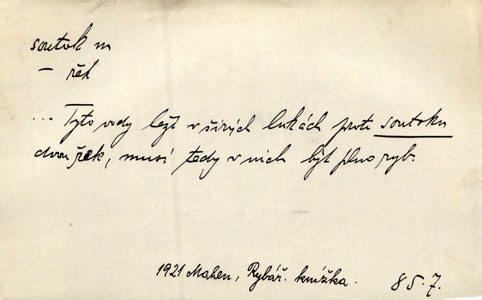 soutok m
– řek
... Tyto vody leží v širých lukách proti soutoku
dvou řek, musí tedy v nich být plno ryb.
1921 Mahen, Rybář. knížka. 85.7.